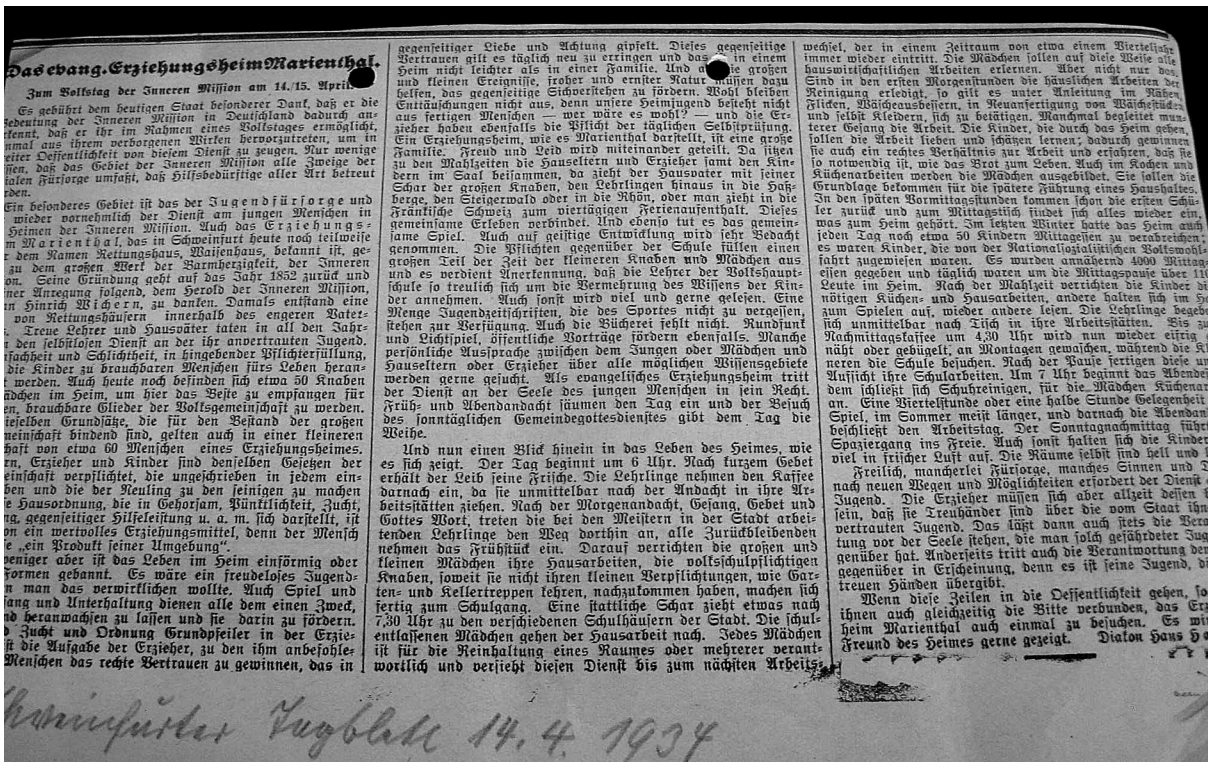 Das evang. Erziehungsheim Marienthal.
Zum Volkstag der Inneren Mission am 14./15. April.
Es gebührt dem heutigen Staat besonderer Dank, daß er die
Bedeutung der Inneren Mission in Deutschland dadurch an-
kennt, daß er ihr im Rahmen eines Volkstages ermöglicht,
nmal aus ihrem verborgenen Wirken hervorzutreten, um in
eiter Oeffentlichkeit von diesem Dienst zu zeugen. Nur wenige
ssen, daß das Gebiet der Inneren Mission alle Zweige der
ialen Fürsorge umfaßt, daß Hilfsbedürftige aller Art betreut
rden.
Ein besonderes Gebiet ist das der Jugendfürsorge und
wieder vornehmlich der Dienst am jungen Menschen in
Heimen der Inneren Mission. Auch das Erziehungs-
m Marienthal, das in Schweinfurt heute noch teilweise
r dem Namen Rettungshaus, Waisenhaus, bekannt ist, ge-
zu dem großen Werk der Barmherzigkeit, der Inneren
on. Seine Gründung geht auf das Jahr 1852 zurück und
iner Anregung folgend, dem Herold der Inneren Mission,
n Hinrich Wichern, zu danken. Damals entstand eine
von Rettungshäusern innerhalb des engeren Vater-
. Treue Lehrer und Hausväter taten in all den Jahr-
n den selbstlosen Dienst an der ihr anvertrauten Jugend.
fachheit und Schlichtheit, in hingebender Pflichterfüllung,
die Kinder zu brauchbaren Menschen fürs Leben heran-
t werden. Auch heute noch befinden sich etwa 50 Knaben
ädchen im Heim, um hier das Beste zu empfangen für
en, brauchbare Glieder der Volksgemeinschaft zu werden.
ieselben Grundsätze, die für den Bestand der großen
meinschaft bindend sind, gelten auch in einer kleineren
haft von etwa 60 Menschen eines Erziehungsheimes.
rn, Erzieher und Kinder sind denselben Gesetzen der
einschaft verpflichtet, die ungeschrieben in jedem ein-
ben und die der Neuling zu den seinigen zu machen
e Hausordnung, die in Gehorsam, Pünktlichkeit, Zucht,
ng, gegenseitiger Hilfeleistung u. a. m. sich darstellt, ist
on ein wertvolles Erziehungsmittel, denn der Mensch
e „ein Produkt seiner Umgebung“.
weniger aber ist das Leben im Heim einförmig oder
Formen gebannt. Es wäre ein freudeloses Jugend-
n man das verwirklichen wollte. Auch Spiel und
fang und Unterhaltung dienen alle dem einen Zweck,
nd heranwachsen zu lassen und sie darin zu fördern.
d Zucht und Ordnung Grundpfeiler in der Erzie-
st die Aufgabe der Erzieher, zu den ihm anbefohle-
Menschen das rechte Vertrauen zu gewinnen, das in
gegenseitiger Liebe und Achtung gipfelt. Dieses gegenseitige
Vertrauen gilt es täglich neu zu erringen und das in einem
Heim nicht leichter als in einer Familie. Und a ie großen
und kleinen Ereignisse, froher und ernster Natur müssen dazu
helfen, das gegenseitige Sichverstehen zu fördern. Wohl bleiben
Enttäuschungen nicht aus, denn unsere Heimjugend besteht nicht
aus fertigen Menschen — wer wäre es wohl? — und die Er-
zieher haben ebenfalls die Pflicht der täglichen Selbstprüfung.
Ein Erziehungsheim, wie es Marienthal darstellt, ist eine große
Familie. Freud und Leid wird miteinander geteilt. Da sitzen
zu den Mahlzeiten die Hauseltern und Erzieher samt den Kin-
dern im Saal beisammen, da zieht der Hausvater mit seiner
Schar der großen Knaben, den Lehrlingen hinaus in die Haß-
berge, den Steigerwald oder in die Rhön, oder man zieht in die
Fränkische Schweiz zum viertägigen Ferienaufenthalt. Dieses
gemeinsame Erleben verbindet. Und ebenso tut es das gemein-
same Spiel. Auch auf geistige Entwicklung wird sehr Bedacht
genommen. Die Pflichten gegenüber der Schule füllen einen
großen Teil der Zeit der kleineren Knaben und Mädchen aus
und es verdient Anerkennung, daß die Lehrer der Volkshaupt-
schule so treulich sich um die Vermehrung des Wissens der Kin-
der annehmen. Auch sonst wird viel und gerne gelesen. Eine
Menge Jugendzeitschriften, die des Sportes nicht zu vergessen,
stehen zur Verfügung. Auch die Bücherei fehlt nicht. Rundfunk
und Lichtspiel, öffentliche Vorträge fördern ebenfalls. Manche
persönliche Aussprache zwischen dem Jungen oder Mädchen und
Hauseltern oder Erzieher über alle möglichen Wissensgebiete
werden gerne gesucht. Als evangelisches Erziehungsheim tritt
der Dienst an der Seele des jungen Menschen in sein Recht.
Früh- und Abendandacht säumen den Tag ein und der Besuch
des sonntäglichen Gemeindegottesdienstes gibt dem Tag die
Weihe.
Und nun einen Blick hinein in das Leben des Heimes, wie
es sich zeigt. Der Tag beginnt um 6 Uhr. Nach kurzem Gebet
erhält der Leib seine Frische. Die Lehrlinge nehmen den Kaffee
darnach ein, da sie unmittelbar nach der Andacht in ihre Ar-
beitsstätten ziehen. Nach der Morgenandacht, Gesang, Gebet und
Gottes Wort, treten die bei den Meistern in der Stadt arbei-
tenden Lehrlinge den Weg dorthin an, alle Zurückbleibenden
nehmen das Frühstück ein. Darauf verrichten die großen und
kleinen Mädchen ihre Hausarbeiten, die volksschulpflichtigen
Knaben, soweit sie nicht ihren kleinen Verpflichtungen, wie Gar-
ten- und Kellertreppen kehren, nachzukommen haben, machen sich
fertig zum Schulgang. Eine stattliche Schar zieht etwas nach
7,30 Uhr zu den verschiedenen Schulhäusern der Stadt. Die schul-
entlassenen Mädchen gehen der Hausarbeit nach. Jedes Mädchen
ist für die Reinhaltung eines Raumes oder mehrerer verant-
wortlich und versieht diesen Dienst bis zum nächsten Arbeits-
wechsel, der in einem Zeitraum von etwa einem Vierteljahr
immer wieder eintritt. Die Mädchen sollen auf diese Weise alle
hauswirtschaftlichen Arbeiten erlernen. Aber nicht nur das.
Sind in den ersten Morgenstunden die häuslichen Arbeiten der
Reinigung erledigt, so gilt es unter Anleitung im Nähen,
Flicken, Wäscheausbessern, in Neuanfertigung von Wäschestücken
und selbst Kleidern, sich zu betätigen. Manchmal begleitet mun-
terer Gesang die Arbeit. Die Kinder, die durch das Heim gehen,
sollen die Arbeit lieben und schätzen lernen; dadurch gewinnen
sie auch ein rechtes Verhältnis zur Arbeit und erfahren, daß sie
so notwendig ist, wie das Brot zum Leben. Auch im Kochen und
Küchenarbeiten werden die Mädchen ausgebildet. Sie sollen die
Grundlage bekommen für die spätere Führung eines Haushaltes.
In den späten Vormittagsstunden kommen schon die ersten Schü-
ler zurück und zum Mittagstisch findet sich alles wieder ein,
was zum Heim gehört. Im letzten Winter hatte das Heim auch
jeden Tag noch etwa 50 Kindern Mittagessen zu verabreichen;
es waren Kinder, die von der Nationalsozialistischen Volkswohl-
fahrt zugewiesen waren. Es wurden annähernd 4000 Mittag-
essen ausgegeben und täglich waren um die Mittagspause über 110
Leute im Heim. Nach der Mahlzeit verrichten die Kinder die
nötigen Küchen- und Hausarbeiten, andere halten sich im Ho
zum Spielen auf, wieder andere lesen. Die Lehrlinge begebe
sich unmittelbar nach Tisch in ihre Arbeitsstätten. Bis zu
Nachmittagskaffee um 4,30 Uhr wird nun wieder eifrig
näht oder gebügelt, an Montagen gewaschen, während die K
neren die Schule besuchen. Nach der Pause fertigen diese u
Aufsicht ihre Schularbeiten. Um 7 Uhr beginnt das Abendes
dem schließt sich Schuhreinigen, für die Mädchen Küchenar
an. Eine Viertelstunde oder eine halbe Stunde Gelegenheit
Spiel, im Sommer meist länger, und darnach die Abendan
beschließt den Arbeitstag. Der Sonntagnachmittag führt
Spaziergang ins Freie. Auch sonst halten sich die Kinder
viel in frischer Luft auf. Die Räume selbst sind hell und l
Freilich, mancherlei Fürsorge, manches Sinnen und
nach neuen Wegen und Möglichkeiten erfordert der Dienst
Jugend. Die Erzieher müssen sich aber allzeit dessen
sein, daß sie Treuhänder sind über die vom Staat ihn
vertrauten Jugend. Das läßt dann auch stets die Vera
tung vor der Seele stehen, die man solch gefährdeter Jug
genüber hat. Anderseits tritt auch die Verantwortung der
gegenüber in Erscheinung, denn es ist seine Jugend, di
treuen Händen übergibt.
Wenn diese Zeilen in die Oeffentlichkeit gehen, so
ihnen auch gleichzeitig die Bitte verbunden, das Erz
heim Marienthal auch einmal zu besuchen. Es wir
Freund des Heimes gerne gezeigt. Diakon Hans H
Schweinfurter Tagblatt 14. 4. 1934